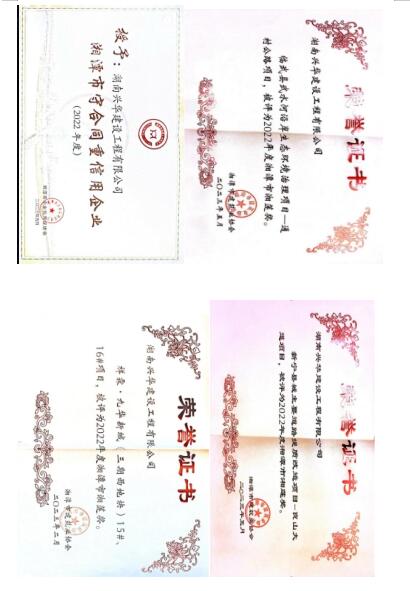 授予：湖南兴华建设工程有限公司
湘潭市守合同重信用企业
（2022 年度）
荣誉证书
湖南兴华建设工程有限公司
临武县武水河沿岸生态环境治理项目—通
村公路项目，被评为2022年度湘潭市湘莲奖。
湘潭市建筑业协会
二〇二三年五月
荣誉证书
湖南兴华建设工程有限公司
祥森·九华新城（三期西地块）15#、
16#项目，被评为2022年度湘潭市湘莲奖。
湘潭市建筑业协会
二〇二三年二月
荣誉证书
湖南兴华建设工程有限公司
新宁县城主要道路提质改造项目—崀山大
道项目，被评为2022年度湘潭市湘莲奖。
湘潭市建筑业协会
二〇二三年五月